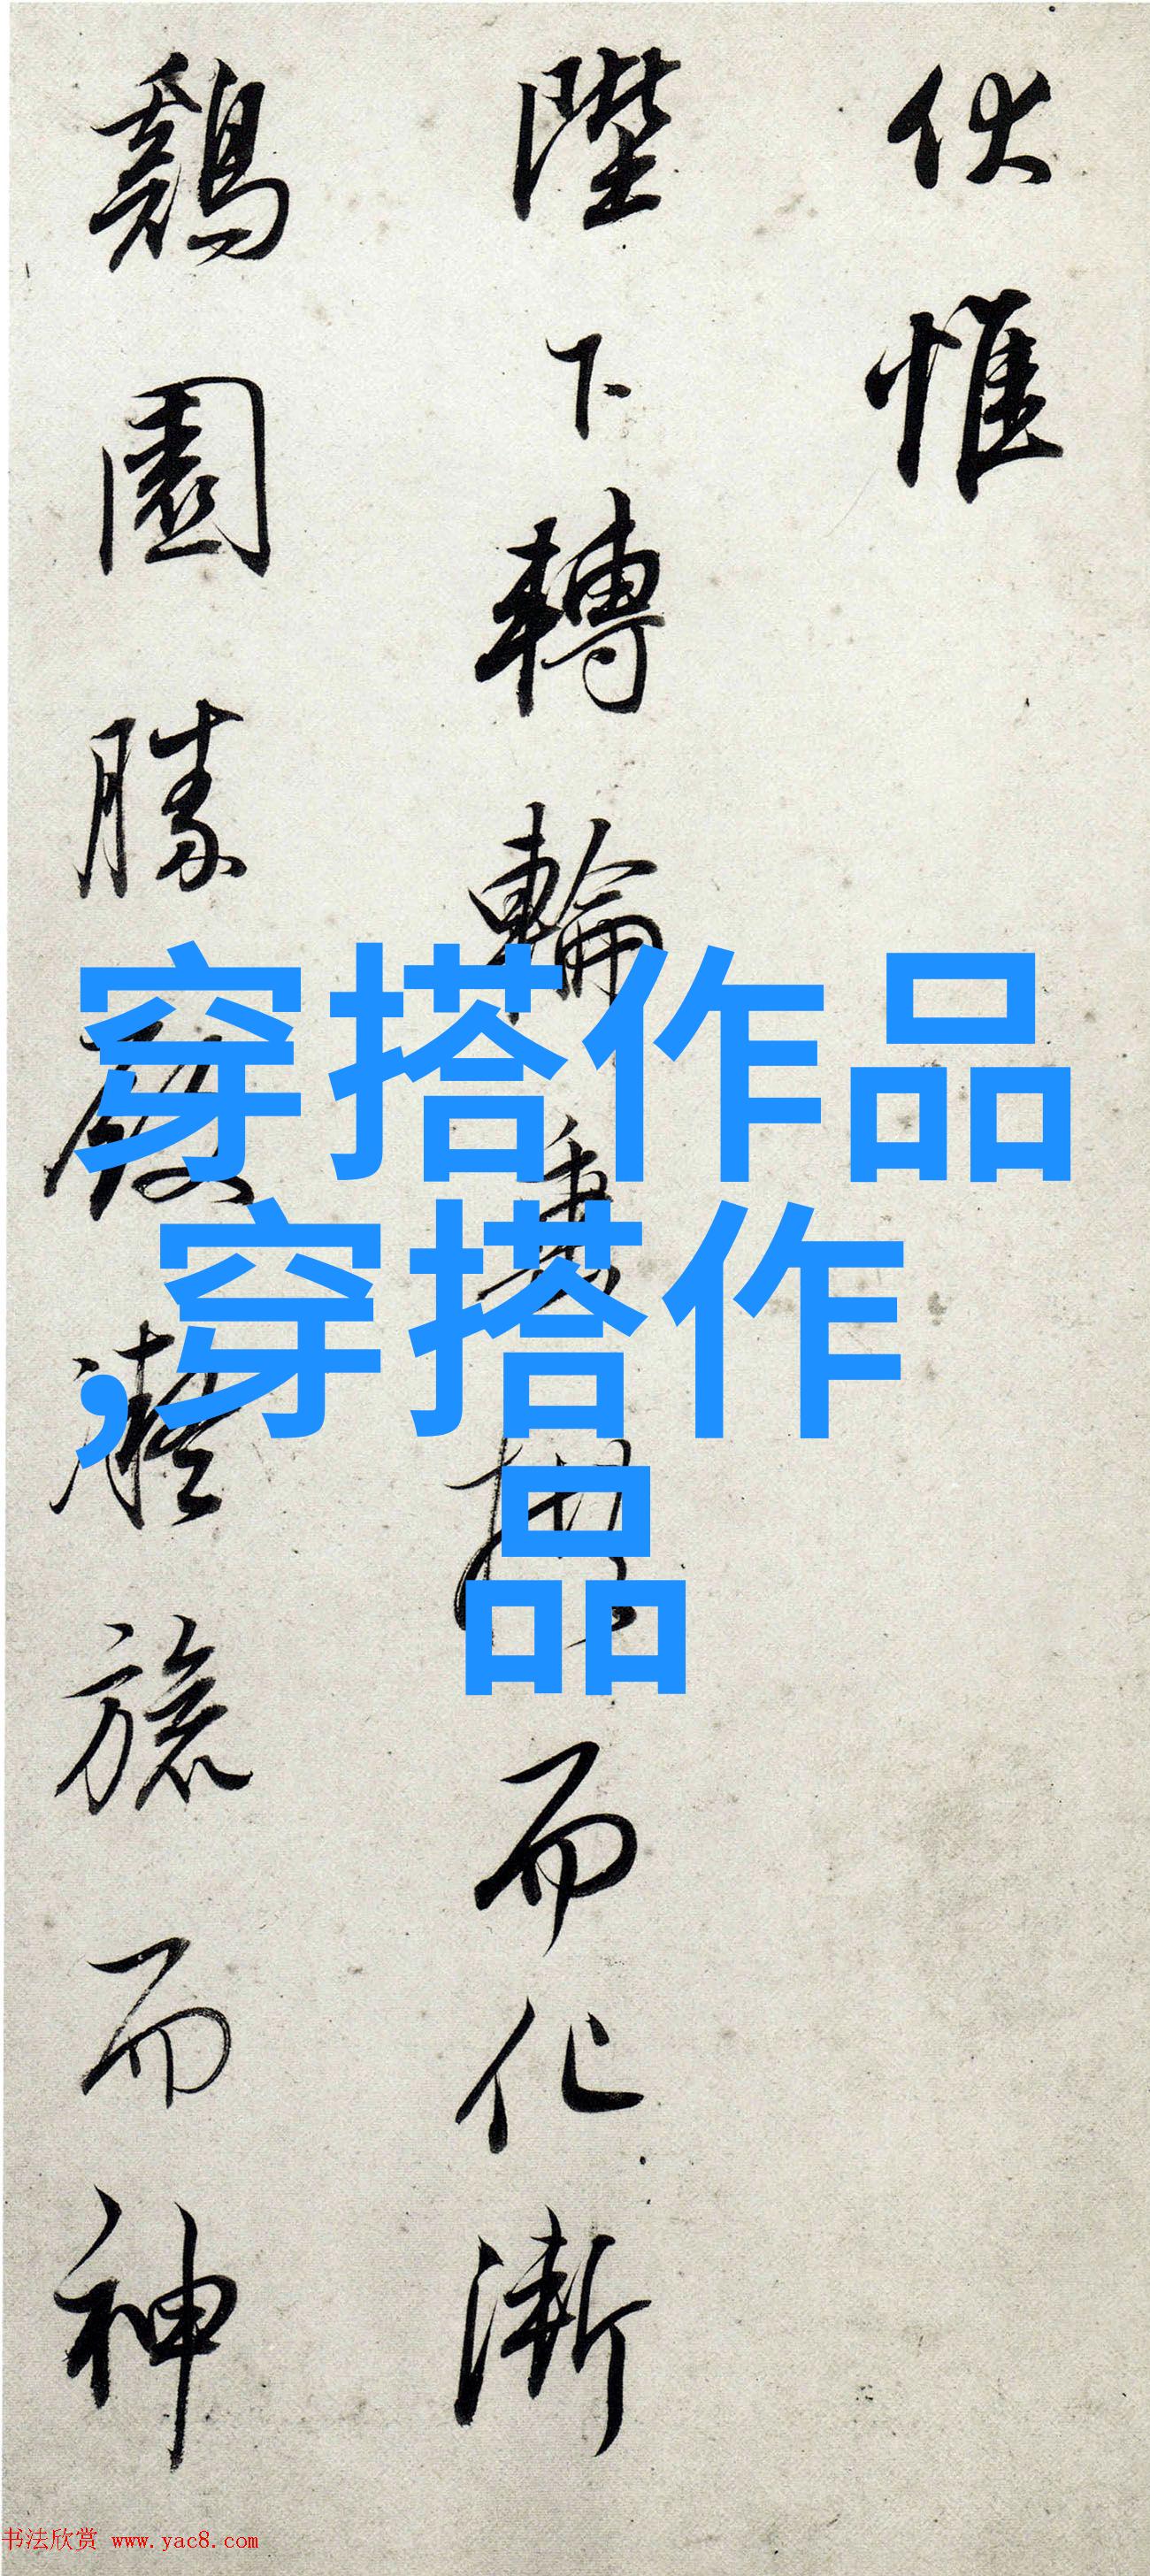 伏惟
陛下轉輪而化漸
鷄園勝凝旒而神
穿搭作品
,穿搭作
品
书法欣赏 www.yac8.com